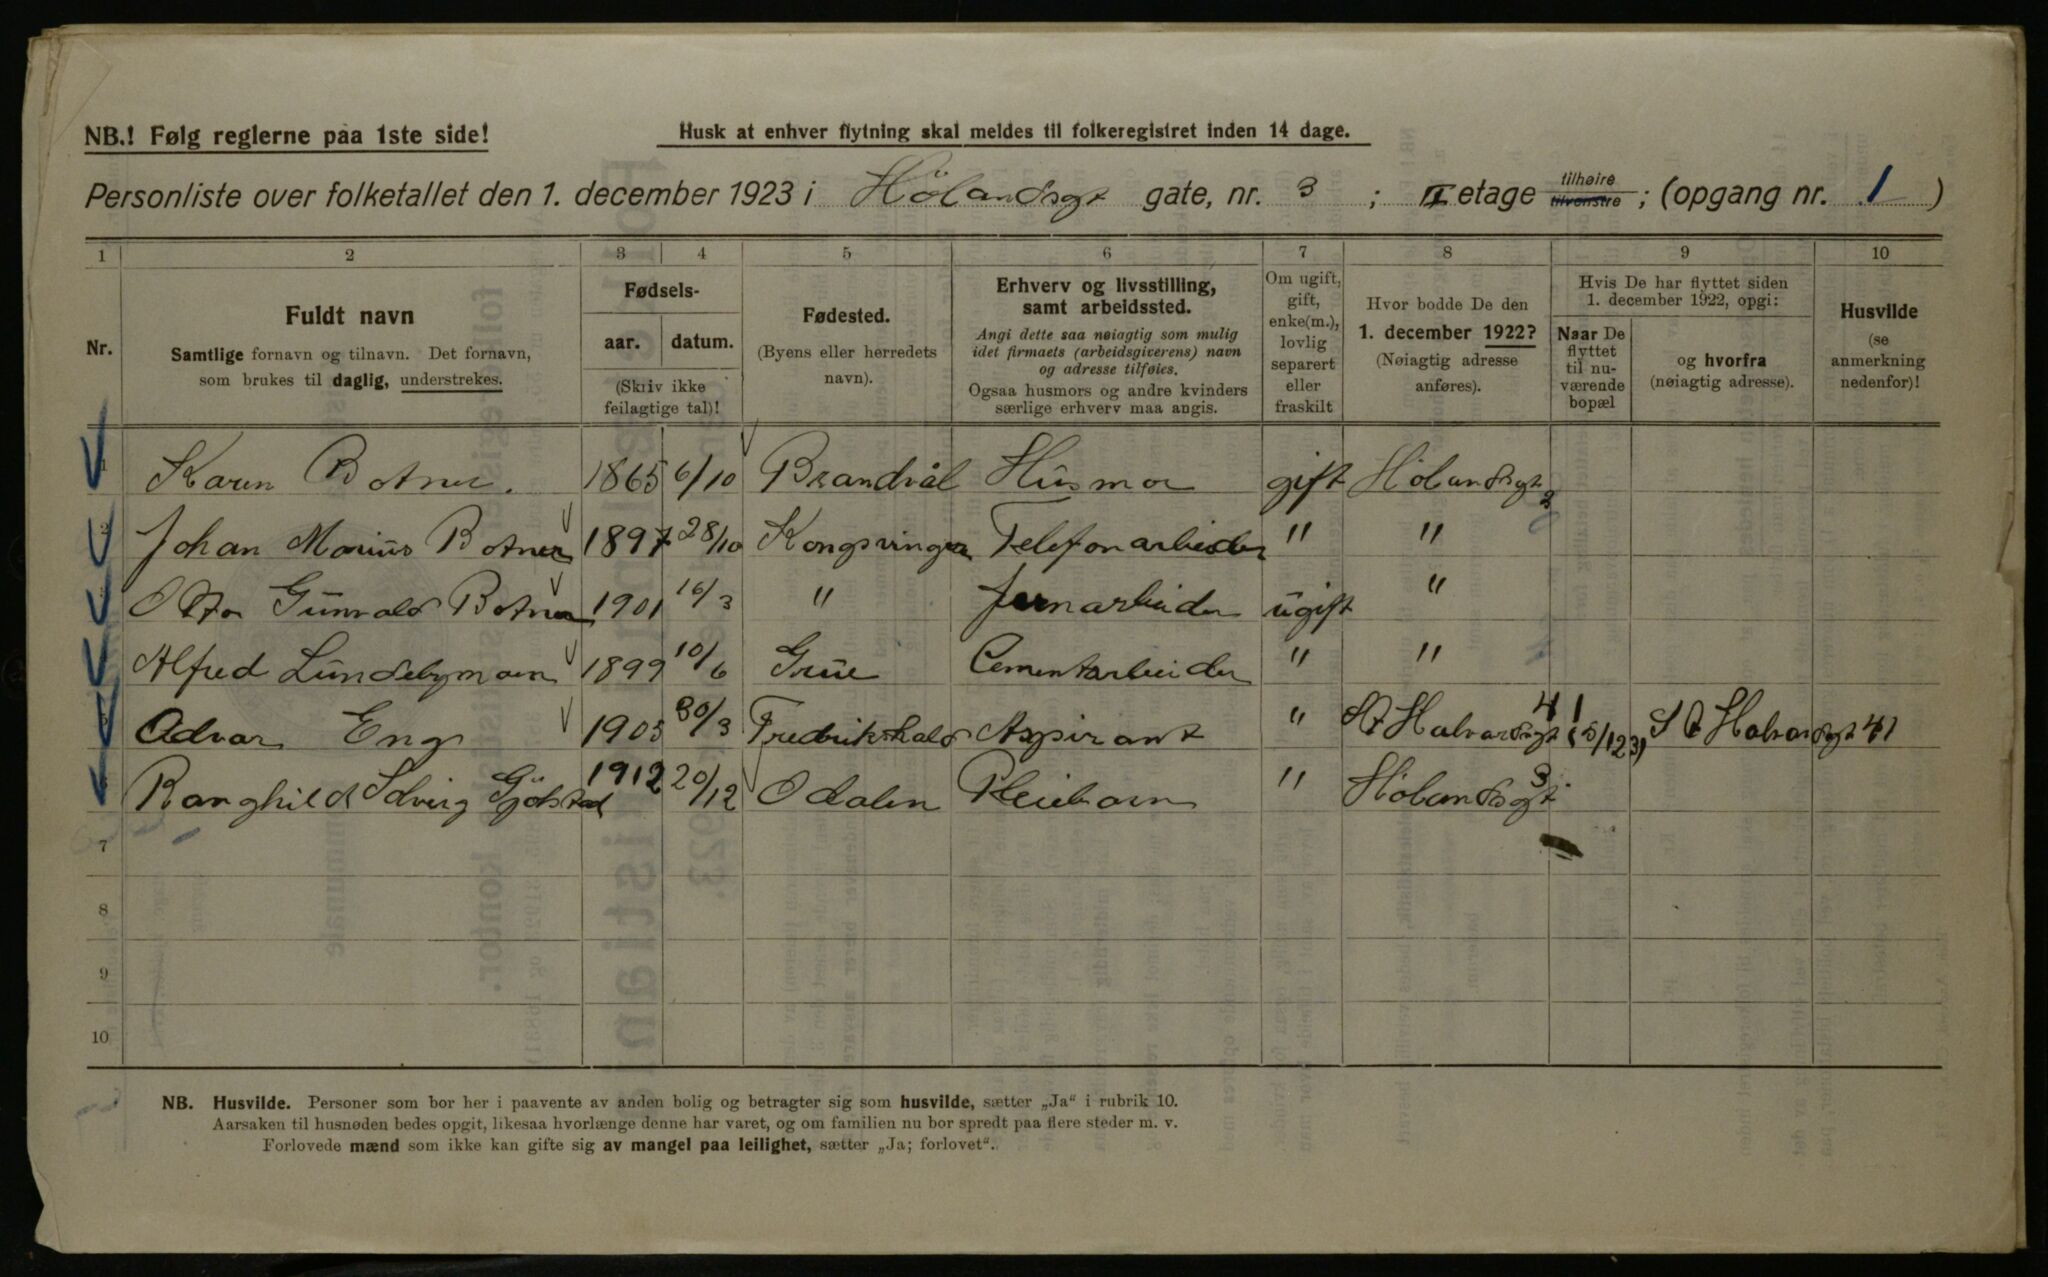 NB.! Følg reglerne paa 1ste side!
Husk at enhver flytning skal meldes til folkeregistret inden 14 dage.
Personliste over folketallet den 1. december 1923 i Hölandsgt gate, nr. 3 ; II etage tilhøire tilvenstre ; (opgang nr. 1 )
1 2 3 4 5 6 7 8 9 10
Nr.
Fuldt navn
Samtlige fornavn og tilnavn. Det fornavn,
som brukes til daglig, understrekes.
Fødsels-
aar. datum.
(Skriv ikke
feilagtige tal)!
Fødested.
(Byens eller herredets
navn).
Erhverv og livsstilling,
samt arbeidssted.
Angi dette saa nøiagtig som mulig
idet firmaets (arbeidsgiverens) navn
og adresse tilføies.
Ogsaa husmors og andre kvinders
særlige erhverv maa angis.
Om ugift,
gift,
enke(m.),
lovlig
separert
eller
fraskilt
Hvor bodde De den
1. december 1922?
(Nøiagtig adresse
anføres).
Hvis De har flyttet siden
1. december 1922, opgi:
Naar De
flyttet
til nu-
værende
bopæl
og hvorfra
(nøiagtig adresse).
Husvilde
(se
anmerkning
nedenfor)!
1 Karen Botner. 1865 6/10 Brandvål Husmor gift Hölandsgt 3
2 Johan Marius Botner 1897 28/10 Kongsvinger Telefonarbeider " "
3 Otto Gunvald Botner 1901 16/3 " Jernarbeider ugift "
4 Alfred Lundebymoen 1899 10/6 Grue Cementarbeider " "
5 Odvar Eng 1903 30/3 Fredrikshald Aspirant " St Halvardsgt 41 15/12 23 St Halvardsgt 41
6 Ranghild Solveig Gjölstad 1912 20/12 Odalen Pleiebarn " Hölandsgt 3
7
8
9
10
NB. Husvilde. Personer som bor her i paavente av anden bolig og betragter sig som husvilde, sætter „Ja" i rubrik 10.
Aarsaken til husnøden bedes opgit, likesaa hvorlænge denne har varet, og om familien nu bor spredt paa flere steder m. v.
Forlovede mænd som ikke kan gifte sig av mangel paa leilighet, sætter „Ja; forlovet".